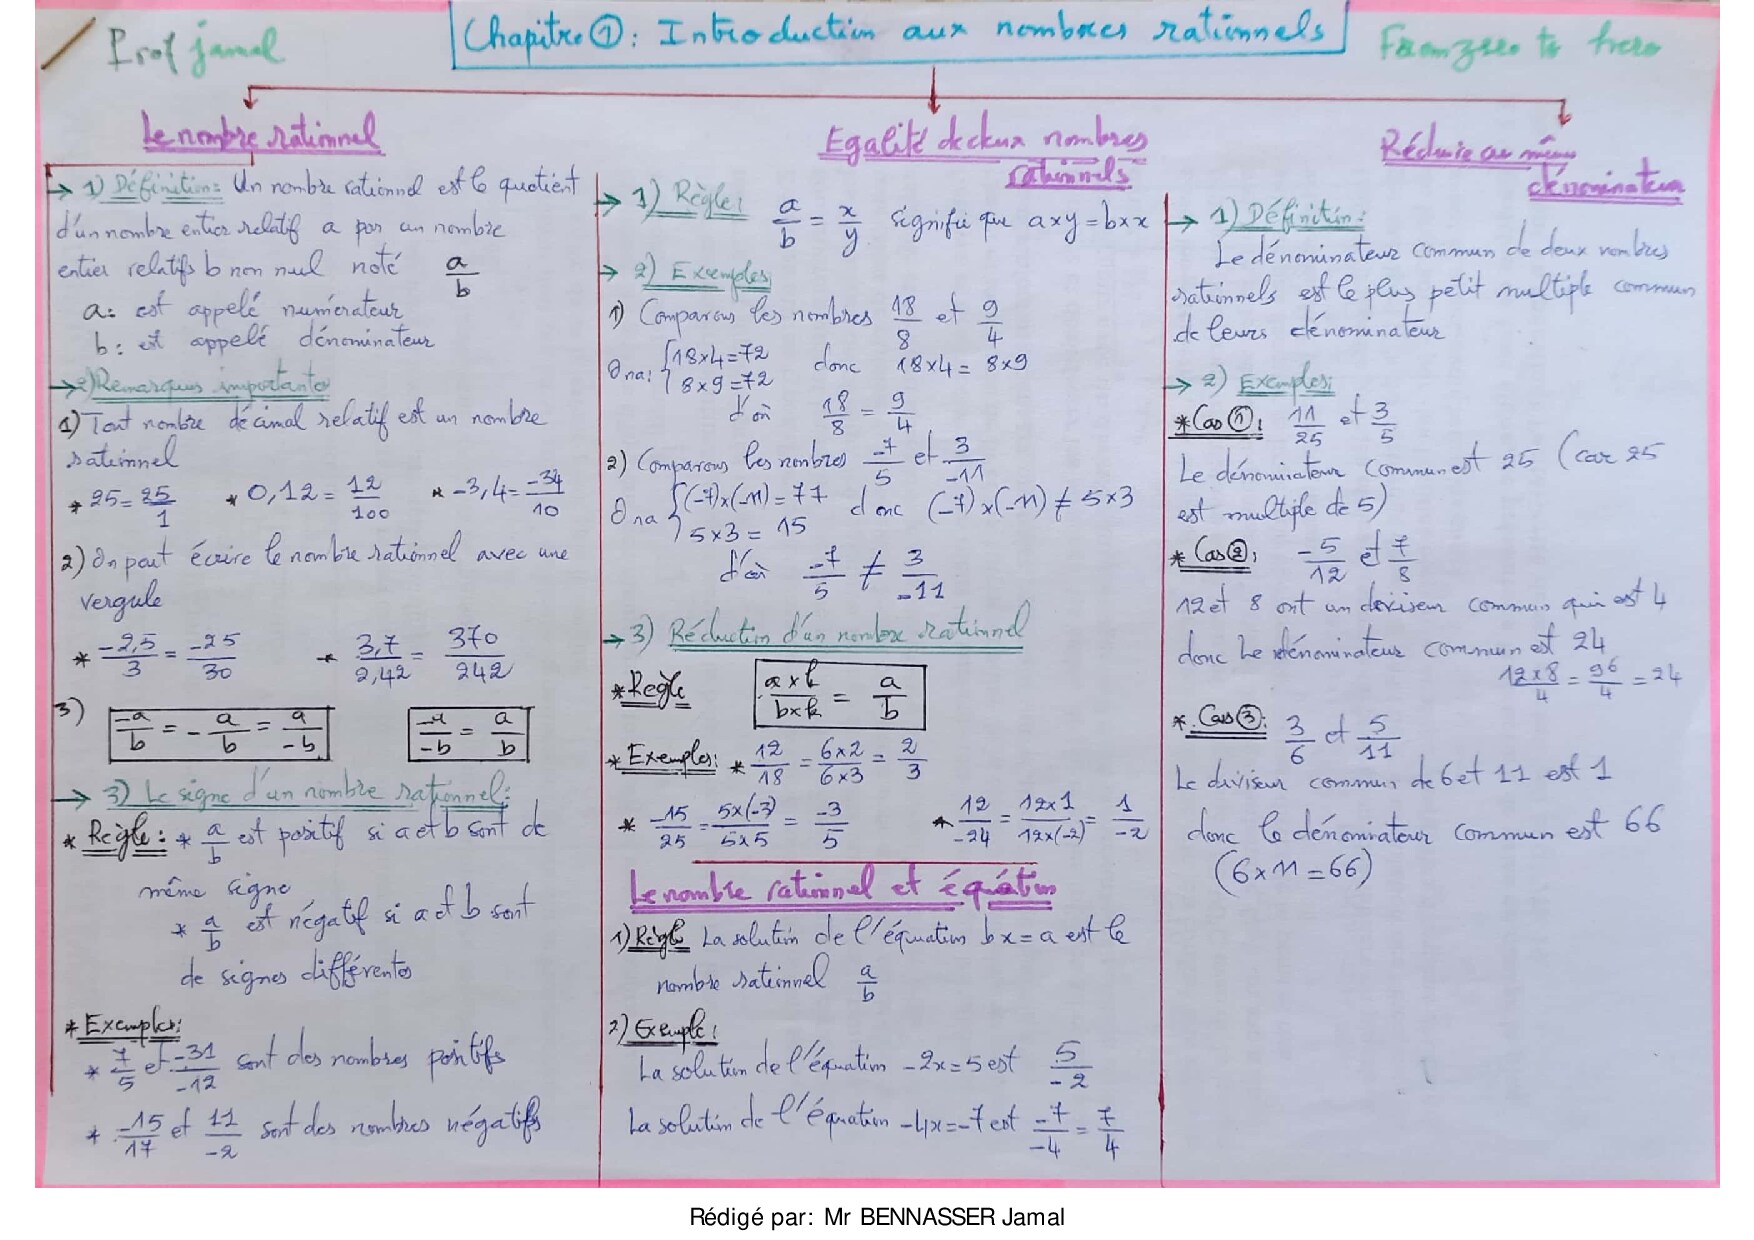 Prof jamal
Chapitre ①: Introduction aux nombres rationnels
From zero to hero
Le nombre rationnel
1) Définition: Un nombre rationnel est le quotient
d'un nombre entier relatif a par un nombre
entier relatifs b non nul noté a/b
a: est appelé numérateur
b: est appelé dénominateur
2) Remarques importantes
1) Tout nombre décimal relatif est un nombre
rationnel
* 25 = 25/1 * 0,12 = 12/100 * -3,4 = -34/10
2) On peut écrire le nombre rationnel avec une
vergule
* -2,5/3 = -25/30 * 3,7/2,42 = 370/242
3) -a/b = -a/b = a/-b -a/-b = a/b
3) Le signe d'un nombre rationnel:
* Règle: * a/b est positif si a et b sont de
même signe
* a/b est négatif si a et b sont
de signes différents
* Exemples:
* 7/5 et -31/-12 sont des nombres positifs
* -15/17 et 11/-2 sont des nombres négatifs
Egalité de deux nombres
rationnels
1) Règle: a/b = x/y signifie que a×y = b×x
2) Exemples
1) Comparons les nombres 18/8 et 9/4
On a: { 18×4 = 72 donc 18×4 = 8×9
8×9 = 72
d'où 18/8 = 9/4
2) Comparons les nombres -7/5 et 3/-11
On a { (-7)×(-11) = 77 donc (-7)×(-11) ≠ 5×3
5×3 = 15
d'où -7/5 ≠ 3/-11
3) Réduction d'un nombre rationnel
* Règle a×k/b×k = a/b
* Exemples: * 12/18 = 6×2/6×3 = 2/3
* -15/25 = 5×(-3)/5×5 = -3/5 * 12/-24 = 12×1/12×(-2) = 1/-2
Le nombre rationnel et équation
1) Règle La solution de l'équation bx = a est le
nombre rationnel a/b
2) Exemple:
La solution de l'équation -2x = 5 est 5/-2
La solution de l'équation -4x = -7 est -7/-4 = 7/4
Réduire au même
dénominateur
1) Définition:
Le dénominateur commun de deux nombres
rationnels est le plus petit multiple commun
de leurs dénominateur
2) Exemples:
* Cas ①: 11/25 et 3/5
Le dénominateur commun est 25 (car 25
est multiple de 5)
* Cas ②: -5/12 et 7/8
12 et 8 ont un deviseur commun qui est 4
donc le dénominateur commun est 24
12×8/4 = 96/4 = 24
* Cas ③: 3/6 et 5/11
Le diviseur commun de 6 et 11 est 1
donc le dénomiateur commun est 66
(6×11 = 66)
Rédigé par: Mr BENNASSER Jamal